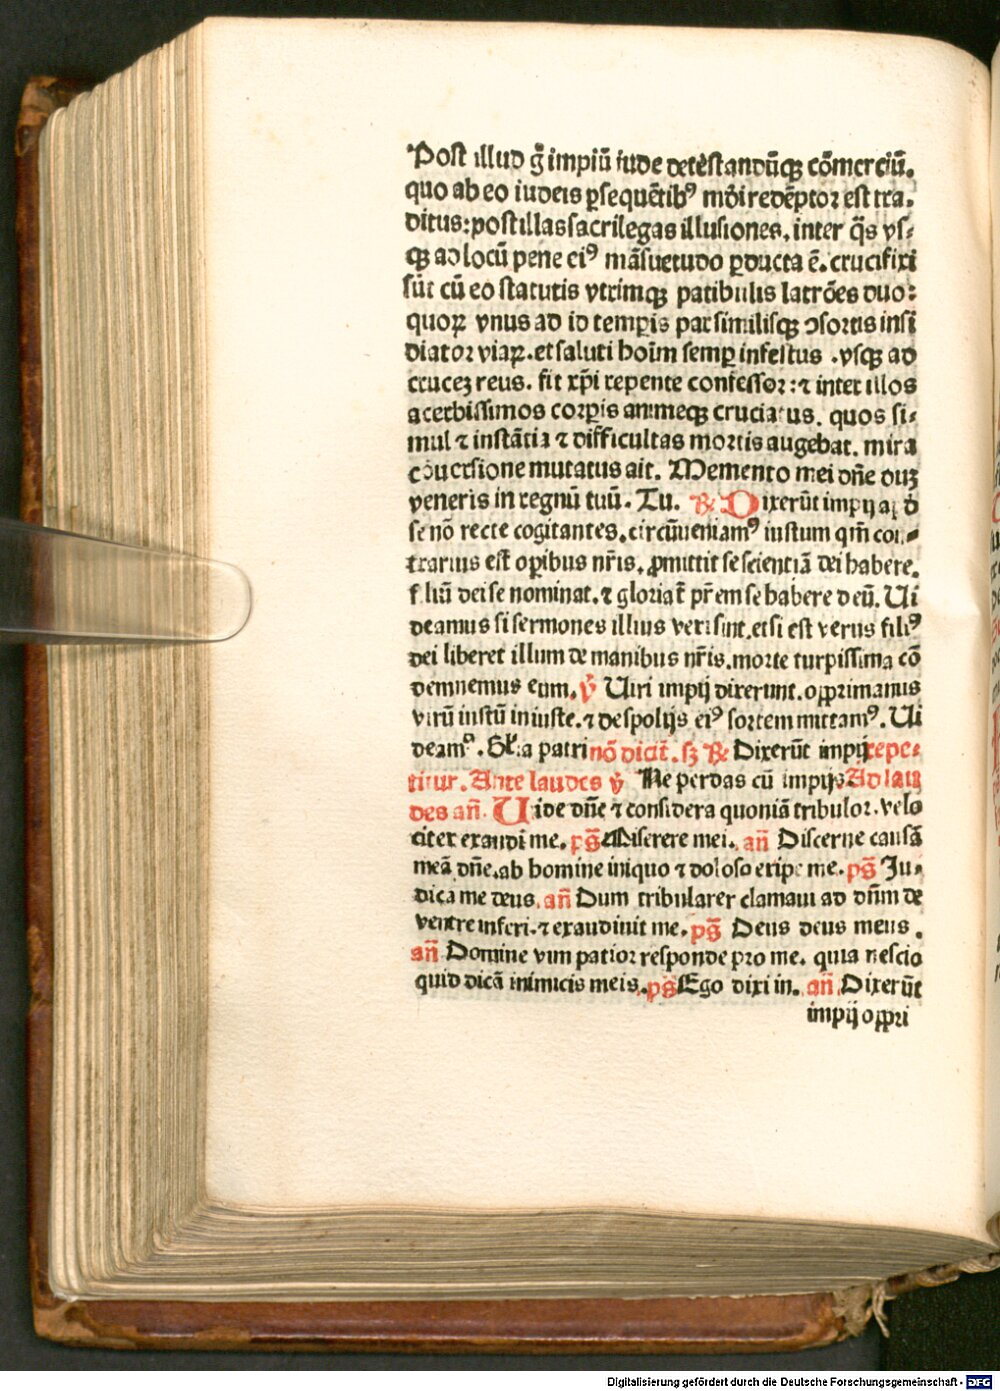 Post illud g̃ impiũ iude detestandũqꝫ cõmerciũ.
quo ab eo iudeis ꝑsequẽtibꝰ mũdi redẽptoꝛ est tra⸗
ditus: post illas sacrilegas illusiones, inter q̃s vſ⸗
qꝫ ad locũ pene eiꝰ mãsuetudo ꝑducta ẽ. crucifixi
sũt cũ eo statutis vtrimqꝫ patibulis latrões duo:
quoꝝ vnus ad id temꝑis par similisqꝫ ꝯsortis insi
diatoꝛ viaꝝ. et saluti hoĩm semꝑ infestus . vsqꝫ ad
crucez reus. fit xp̃i repente confessoꝛ: ⁊ inter illos
acerbissimos coꝛꝑis animeqꝫ cruciatus. quos si⸗
mul ⁊ instãtia ⁊ difficultas moꝛtis augebat. mira
cõuersione mutatus ait. Memento mei dñe duꝫ
veneris in regnũ tuũ. Tu. ℟ Dixerũt impij apḋ
se nõ recte cogitantes. circũueniamꝰ iustum qm̃ con⸗
trarius est oꝑibus nr̃is. ꝓmittit se scientiã dei habere.
filiũ dei se nominat. ⁊ gloriat̃ pr̃em se habere deũ. Ui
deamus si sermones illius veri sint. et si est verus filiꝰ
dei liberet illum de manibus nr̃is. morte turpissima cõ
demnemus eum. ℣ Uiri impij dixerunt. opprimamus
virũ iustũ iniuste. ⁊ despolijs eiꝰ sortem mittamꝰ. Ui
deamꝰ. Gl̃ia patri nõ dicit̃. sꝫ ℟ Dixerũt impij repe⸗
titur. Ante laudes ℣ Ne perdas cũ impijs Ad lau
des añ. Uide dñe ⁊ considera quoniã tribuloꝛ. velo
citer exaudi me. ps̃ Miserere mei. añ Discerne causã
meã dñe. ab homine iniquo ⁊ doloso eripe me. ps̃ Ju⸗
dica me deus. añ Dum tribularer clamaui ad dñm de
ventre inferi. ⁊ exaudiuit me. ps̃ Deus deus meus .
añ Domine vim patioꝛ responde pro me. quia nescio
quid dicã inimicis meis. ps̃ Ego dixi in. añ Dixerũt
impij oppri
Digitalisierung gefördert durch die Deutsche Forschungsgemeinschaft - DFG